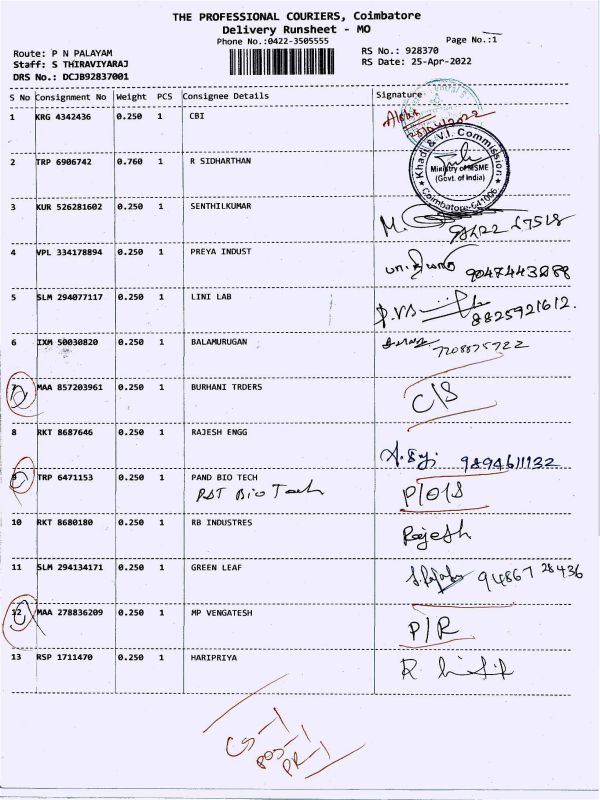 THE PROFESSIONAL COURIERS, Coimbatore
Delivery Runsheet - MO
Phone No.:0422-3505555
Page No.:1
Route: P N PALAYAM
RS No.: 928370
Staff: S THIRAVIYARAJ
RS Date: 25-Apr-2022
DRS No.: DCJB92837001
S No Consignment No Weight PCS Consignee Details Signature
1 KRG 4342436 0.250 1 CBI
2 TRP 6906742 0.760 1 R SIDHARTHAN
Khadi & V.I. Commission
Ministry of MSME
(Govt. of India)
Coimbatore-641006
3 KUR 526281602 0.250 1 SENTHILKUMAR
4 VPL 334178894 0.250 1 PREYA INDUST 9047443288
5 SLM 294077117 0.250 1 LINI LAB 8825921612.
6 IXM 50030820 0.250 1 BALAMURUGAN 7208875722
7 MAA 857203961 0.250 1 BURHANI TRDERS C/S
8 RKT 8687646 0.250 1 RAJESH ENGG 9894611132
9 TRP 6471153 0.250 1 PAND BIO TECH P/O/S
PST Bio Tech
10 RKT 8680180 0.250 1 RB INDUSTRES Rajesh
11 SLM 294134171 0.250 1 GREEN LEAF 94867 28436
12 MAA 278836209 0.250 1 MP VENGATESH P/R
13 RSP 1711470 0.250 1 HARIPRIYA
CS-1
POS-1
PR-1